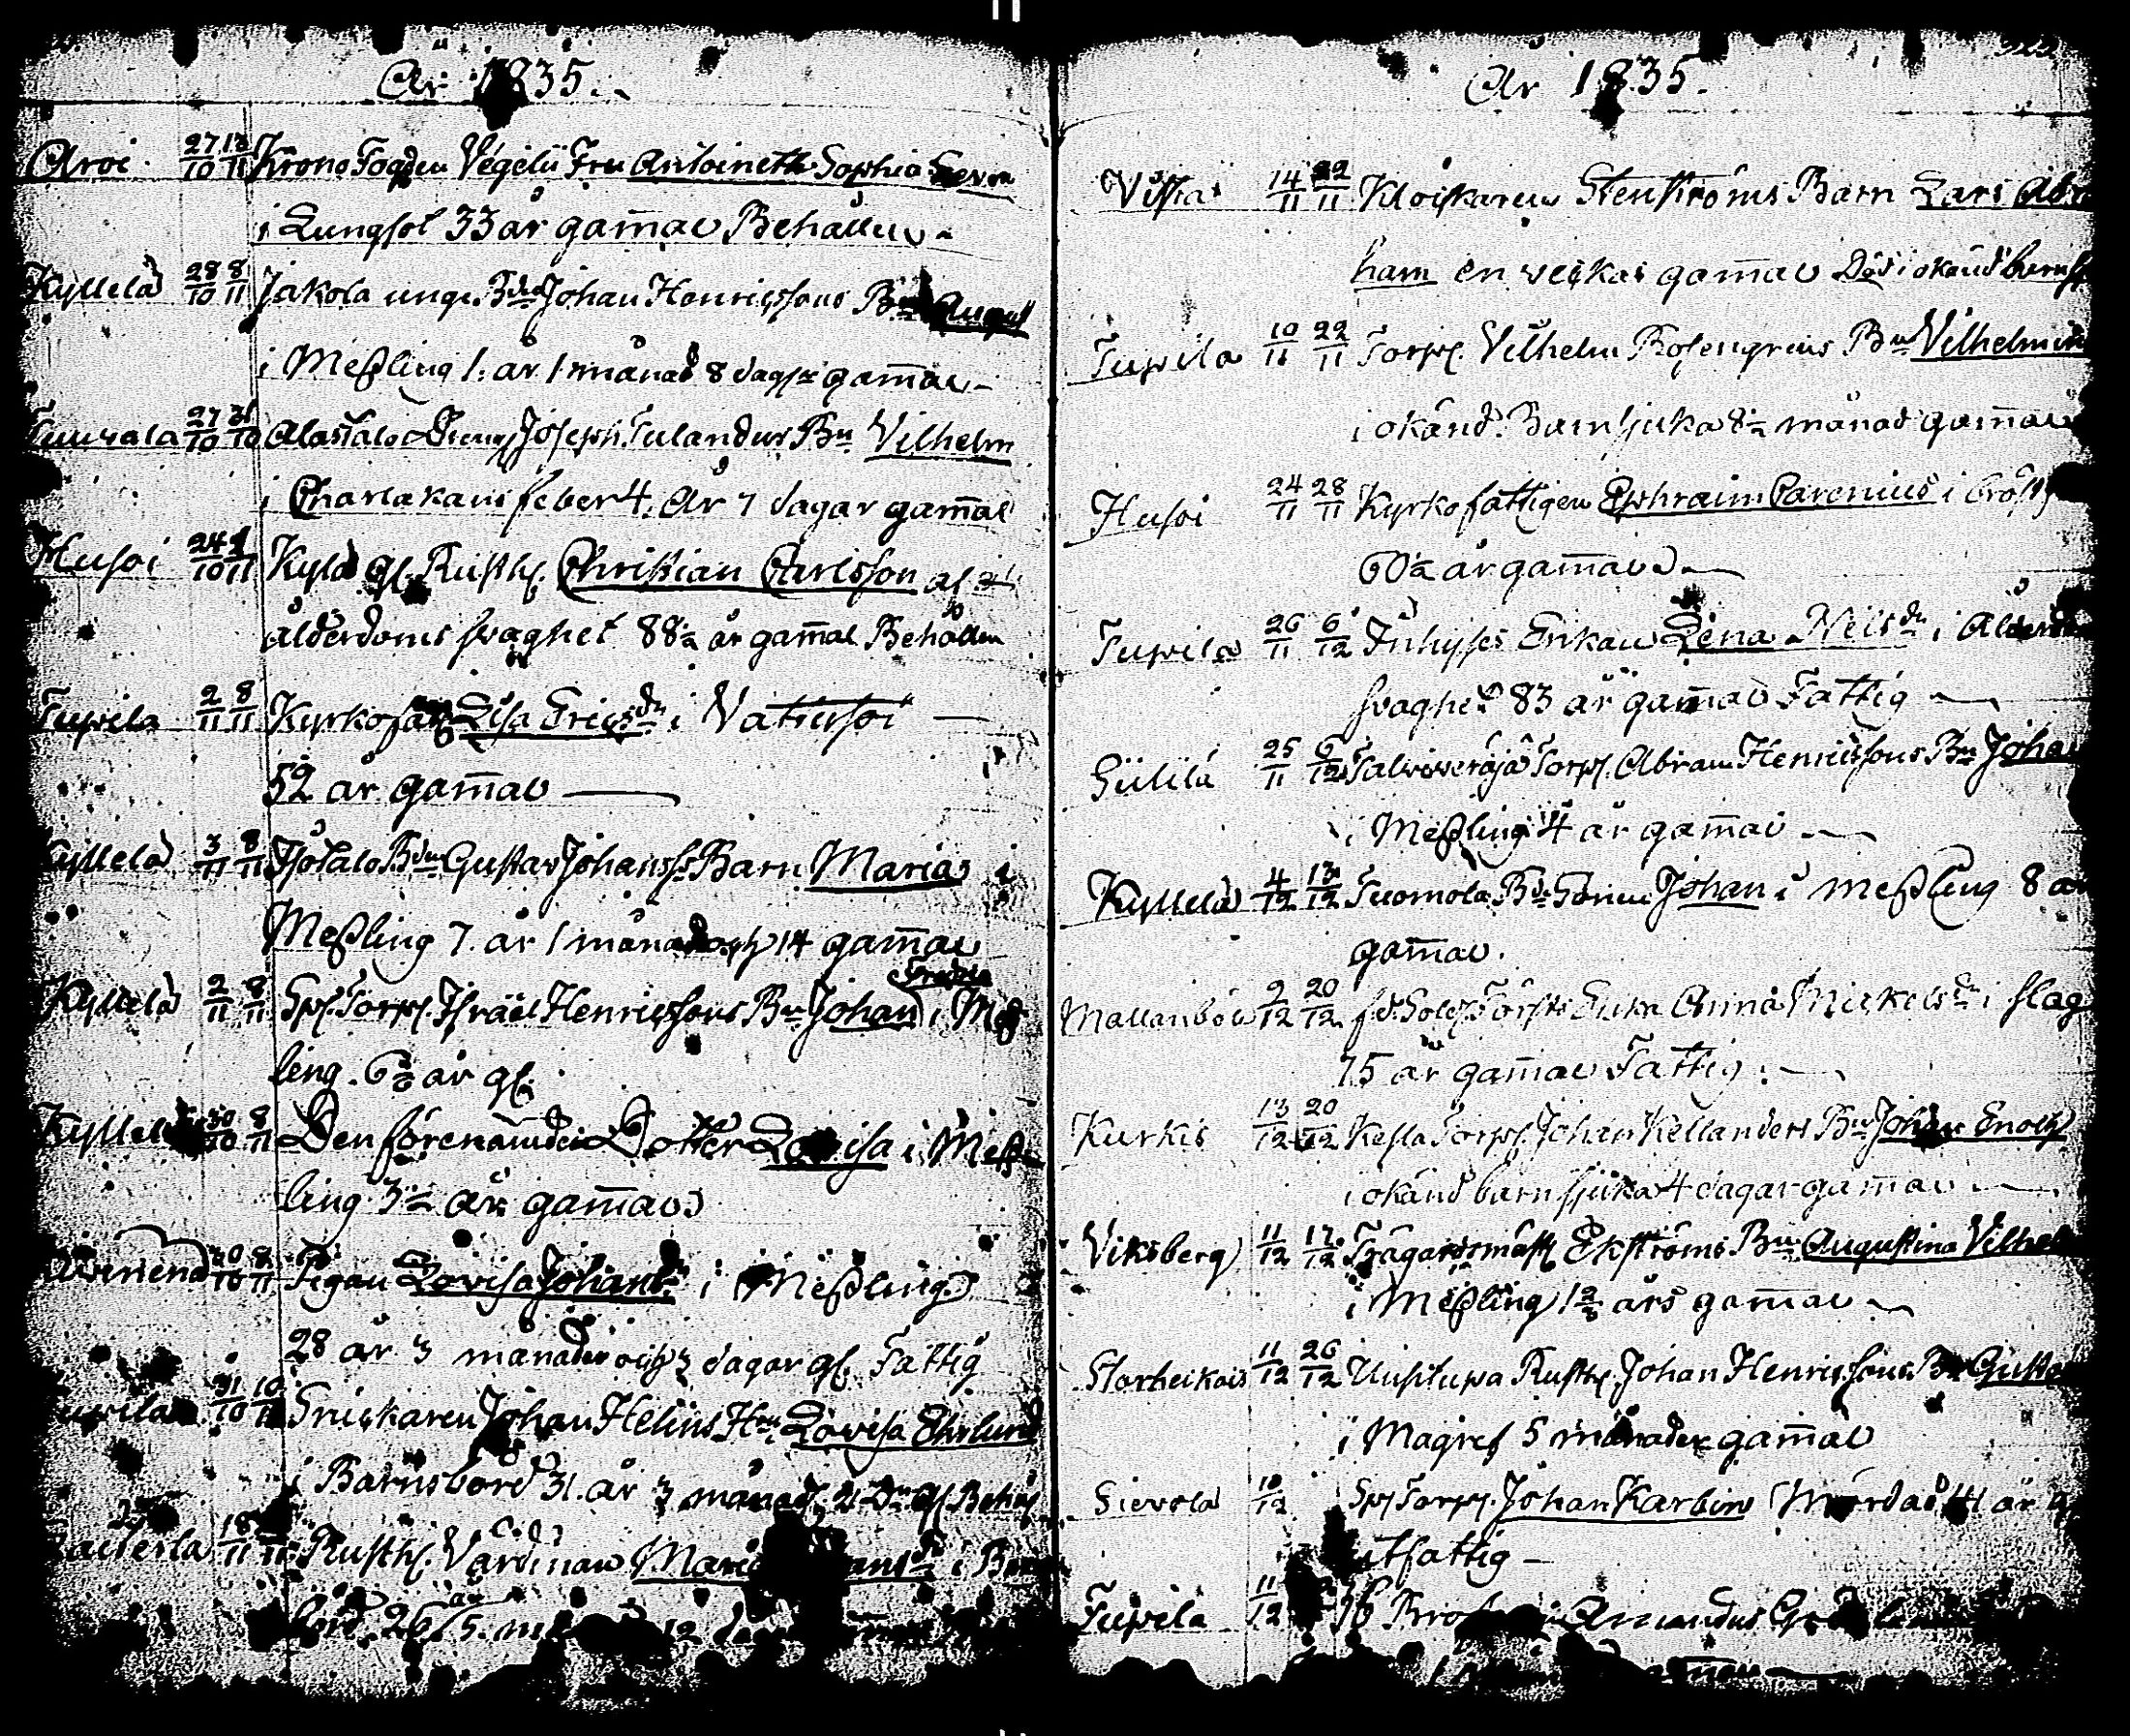 År 1835.
Aroi 27/10 18/11 Krono Fogden Vegelii Fru Antoinette Sophia
i Lungsot 33 år gam̄al Behållen
Kyllelä 28/10 8/11 Jakola unge Bdes Johan Henricssons Bn August
i Meßling 1. år 1 månad 8 dagar gam̄al
27/10 31/10 Alastalo Dreng Joseph Tulanders Bn Vilhelm
i Charlakans feber 4. år 7 dagar gam̄al
Husoi 24/10 1/11 Kylä gl. Rusth. Christian Carlsson af
ålderdoms svaghet 88 1/2 år gam̄al Behållen
Tupila 2/11 8/11 Kyrkofatt. Lisa Ericsdr i
52 år gam̄al
Kyllelä 3/11 8/11 Isotalo Bdn Gustav Johanss Barn Maria i
Meßling 7. år 1 månad och 14 gam̄al
Kyllelä 2/11 8/11 Spl. Torp. Israël Henricssons Bn Johan Fredric i Meß
ling. 6 år gl.
Kyllelä 30/10 8/11 Den förenämdes Dotter Lovisa i Meß
ling 3 1/2 år gam̄al
30/10 8/11 Pigan Lovisa Johansdr i Meßling
28 år 3 månader och 3 dagar gl. Fattig
31/10 10/11 Snickaren Johan Helins Hru Lovisa Ehrlund
i Barnsbörd 31. år 3 månad. 21 Dar gl. Behåll
18/11 Rusth. Värdinan Maria
börd. 26 år 5. m 12
År 1835.
Vista 14/11 22/11 Klockaren Stenströms Barn Lars Abra
ham en veckas gam̄al Död i okänd barnsj
Tupila 10/11 22/11 Torp. Vilhelm Rosengrens Bn Vilhelmina
i okänd Barnsjuka 8 1/2 månad gam̄al
Husoi 24/11 28/11 Kyrkofattigen Ephraim Carenius i bröst
60 1/2 år gam̄al
Tupila 26/11 6/12 Inhyses Enkan Lena Nilsdr i Ålderdoms
svaghet 83 år gam̄al Fattig
25/11 6/12 Torp. Abram Henricssons Bn Johan
i Meßling 4 år gam̄al
Kyllelä 4/12 13/12 Tuomola Bds Sonen Johan i meßling 8 år
gam̄al.
9/12 20/12 Enka Anna Mickelsdr i slag
75 år gam̄al Fattig.
Kurkis 13/12 20/12 Kesla Torp. Johan Kellanders Bn Johan Enoch
i okänd barnsjuka 4 dagar gam̄al
Viksberg 11/12 17/12 Trägårdsmäst. Ekströms Bn Augustina Vilhel
i Meßling 1 2/3 års gam̄al
Storheikois 11/12 26/12 Uusitupa Rusth. Johan Henricssons Bn Gustav
i Magref 5 månader gam̄al
Sievola 10/12 Spl Torp. Johan Karbin Mördad 41 år
utfattig
Tupila 11/12 Amandus